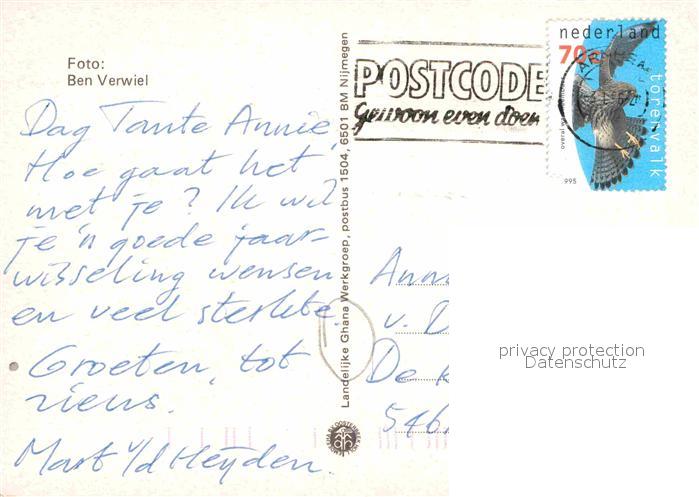 Foto:
Ben Verwiel
Dag Tante Annie,
Hoe gaat het
met je? Ik wil
je 'n goede jaar-
wisseling wensen
en veel sterkte.
Groeten, tot
ziens.
Mart v/d Heyden.
Landelijke Ghana Werkgroep, postbus 1504, 6501 BM Nijmegen
POSTCODE
Gewoon even doen
nederland
70c
torenvalk
1995
Ann
v. D
De
546
privacy protection
Datenschutz